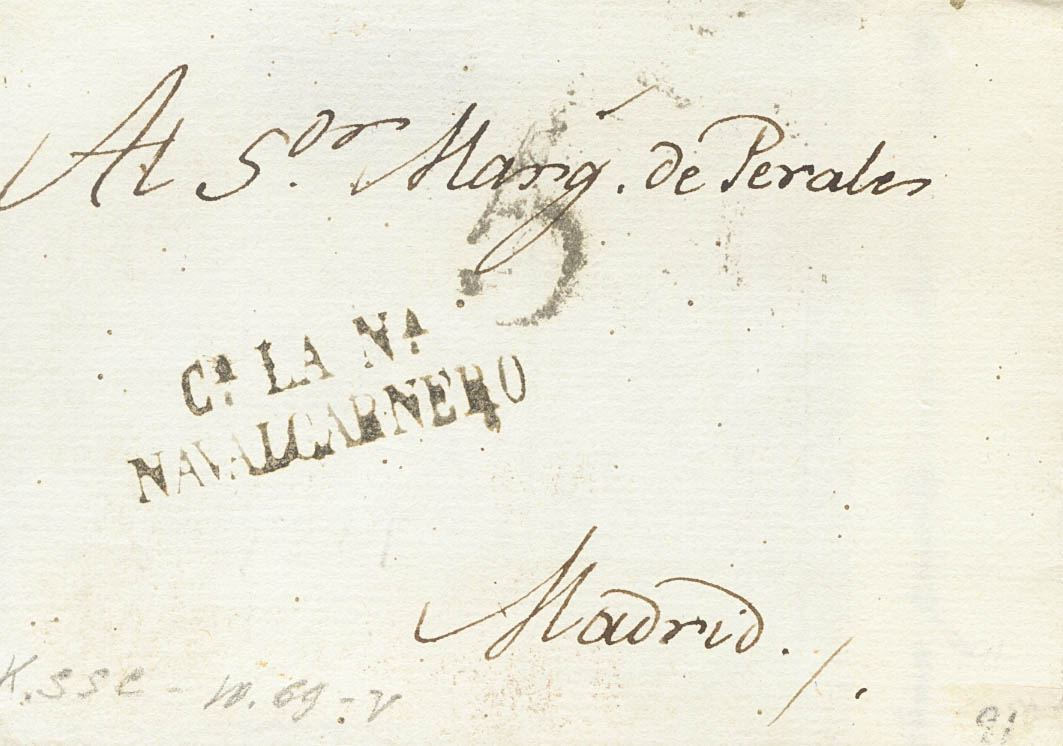 Al S.or Marq. de Perales
5
Cª LA Nª
NAVALCARNERO
Madrid.
91